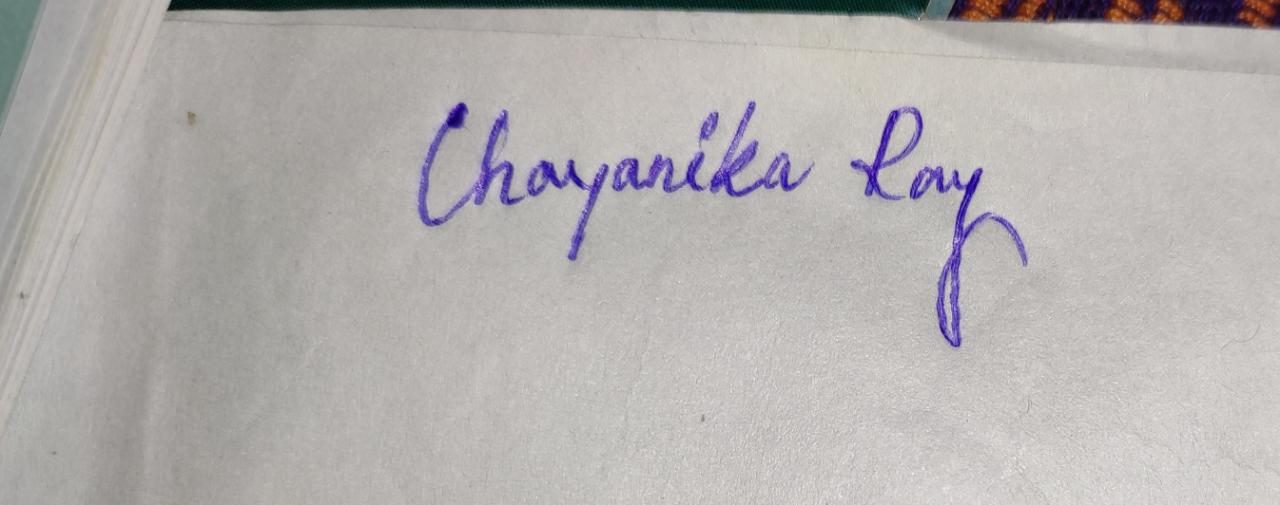 Chayanika Ray